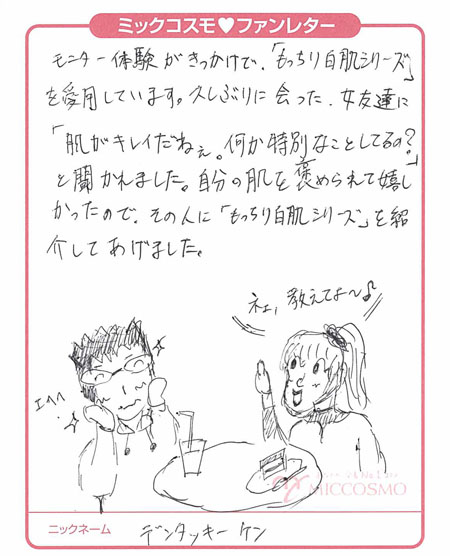 ミックコスモ♥ファンレター
モニター体験がきっかけで、「もっちり白肌シリーズ」
を愛用しています。久しぶりに会った、女友達に
「肌がキレイだねぇ。何か特別なことしてるの？」
と聞かれました。自分の肌を褒められて嬉し
かったので、その人に「もっちり白肌シリーズ」を紹
介してあげました。
ネェ、教えてよ〜♪
エヘヘ
MICCOSMO
ニックネーム デンタッキー ケン